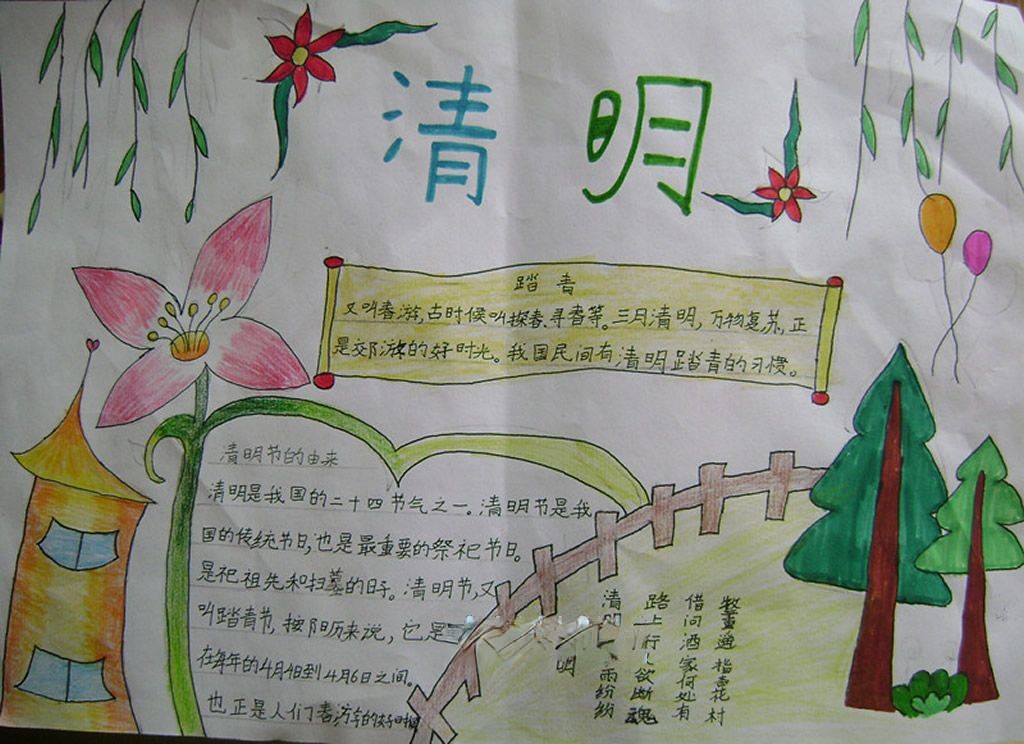 清明
踏青
又叫春游,古时候叫探春.寻春等。三月清明,万物复苏,正
是郊游的好时光。我国民间有清明踏青的习惯。
清明节的由来
清明是我国的二十四节气之一。清明节是我
国的传统节日,也是最重要的祭祀节日。
是祀祖先和扫墓的日子。清明节,又
叫踏青节,按阳历来说,它是
在每年的4月4日到4月6日之间。
也正是人们春游的好时
清明 雨纷纷
路上行 欲断魂
借问酒家何处有
指杏花村
明